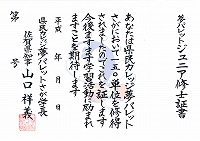 夢パレットジュニア修士証書
あなたは県民カレッジ夢パレット
さがにおいて一五〇単位を修得
されましたのでこれを証します
今後ますます学習活動に励まれ
ますことを期待します
平成　年　月　日
県民カレッジ夢パレットさが学長
佐賀県知事 山口祥義
第　　号